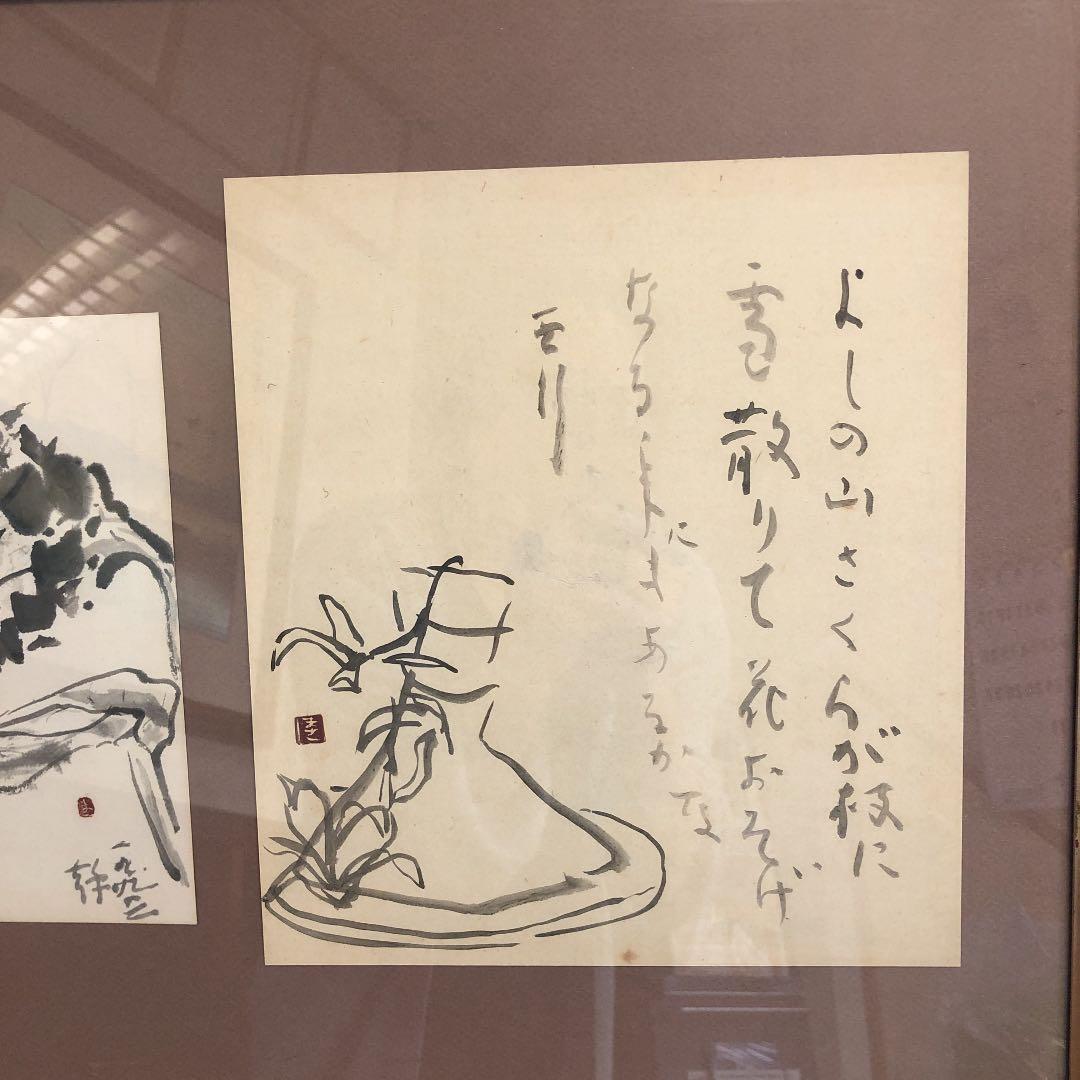 よしの山さくらが枝に
雪散りて花おそげ
なる年にもあるかな
西行
まさ
ま
一九九二